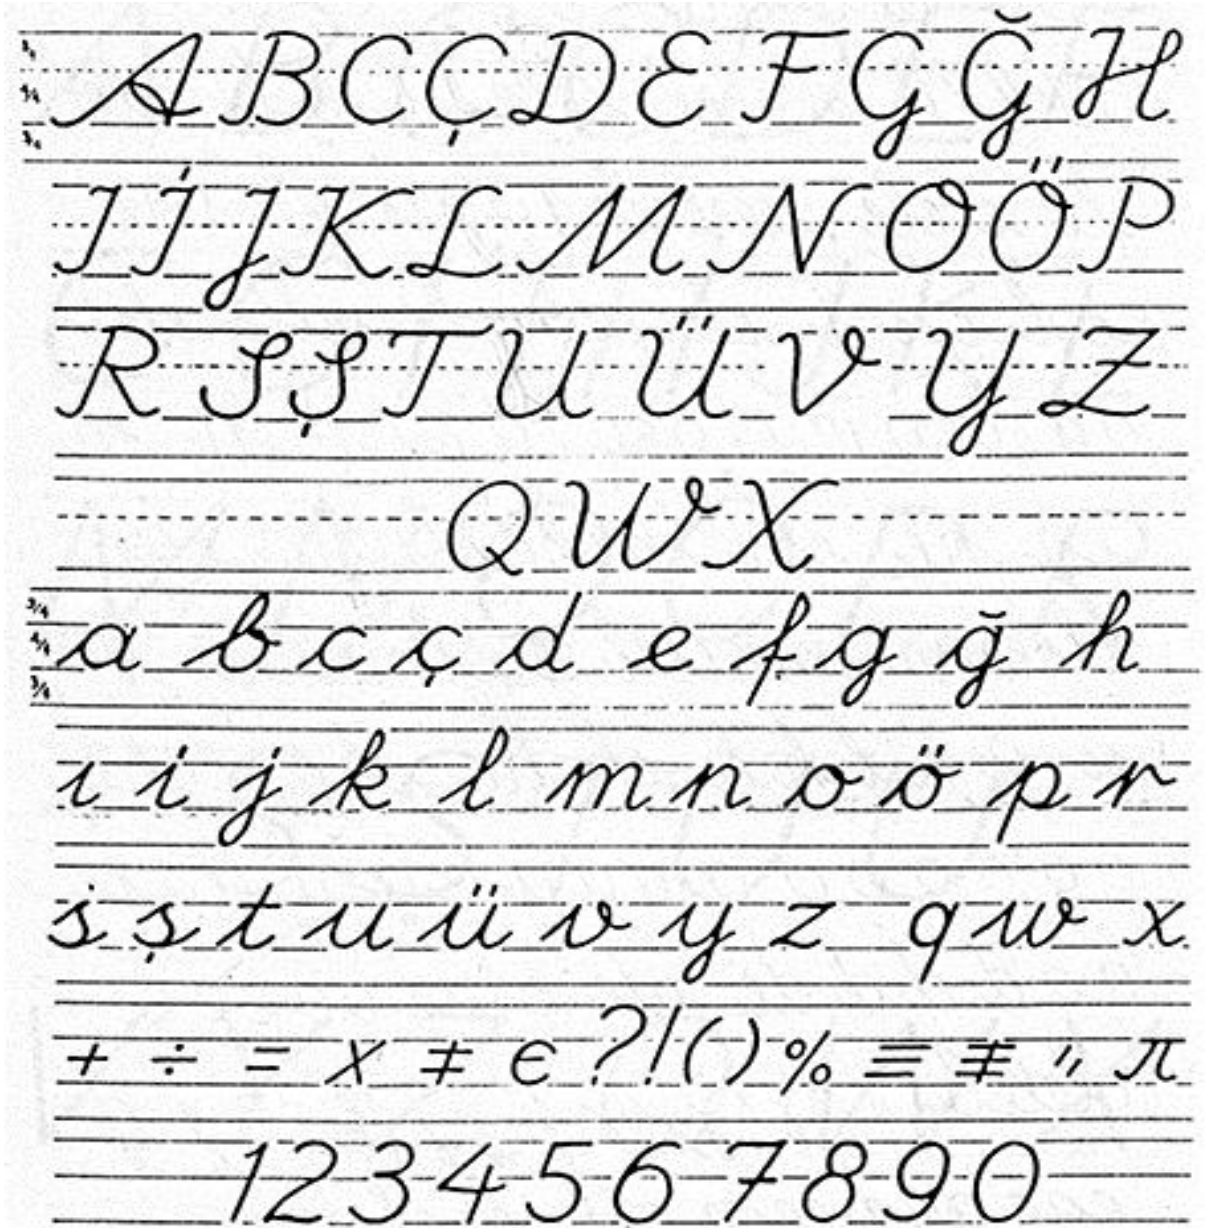 A B C Ç D E F G Ğ H
I İ J K L M N O Ö P
R S Ş T U Ü V Y Z
Q W X
a b c ç d e f g ğ h
ı i j k l m n o ö p r
s ş t u ü v y z q w x
+ ÷ = x ≠ є ? ! ( ) % ≡ ≢ " π
1 2 3 4 5 6 7 8 9 0